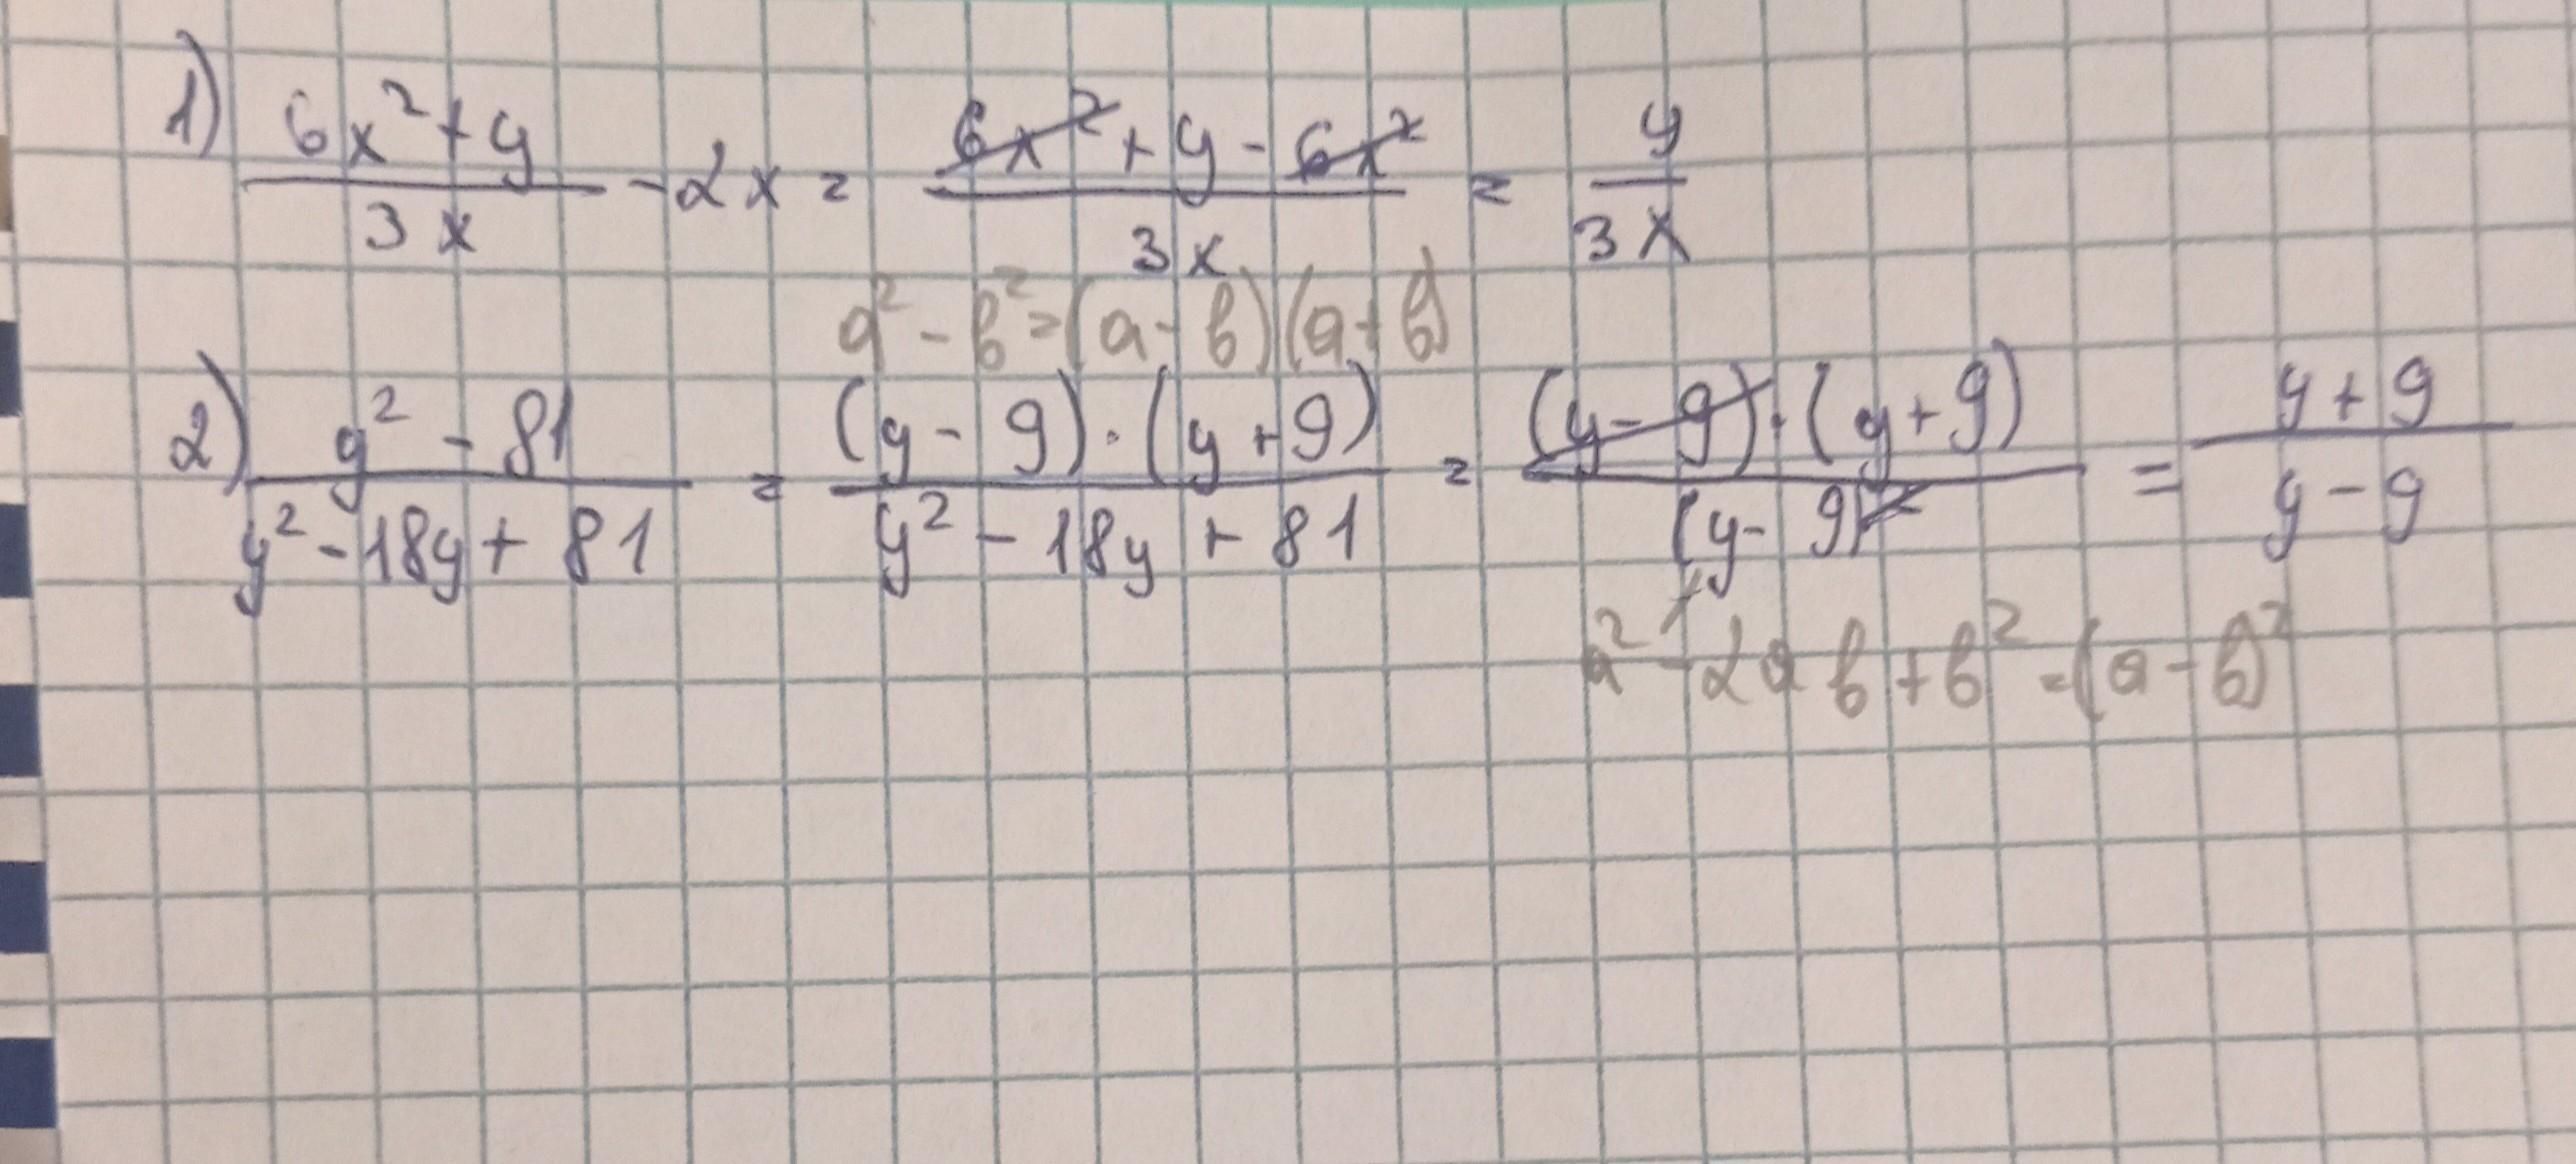 1) (6x² + y)/(3x) - 2x = (6x² + y - 6x²)/(3x) = y/(3x)
a² - b² = (a - b)(a + b)
2) (y² - 81)/(y² - 18y + 81) = ((y - 9)·(y + 9))/(y² - 18y + 81) = ((y - 9)·(y + 9))/((y - 9)²) = (y + 9)/(y - 9)
a² - 2ab + b² = (a - b)²